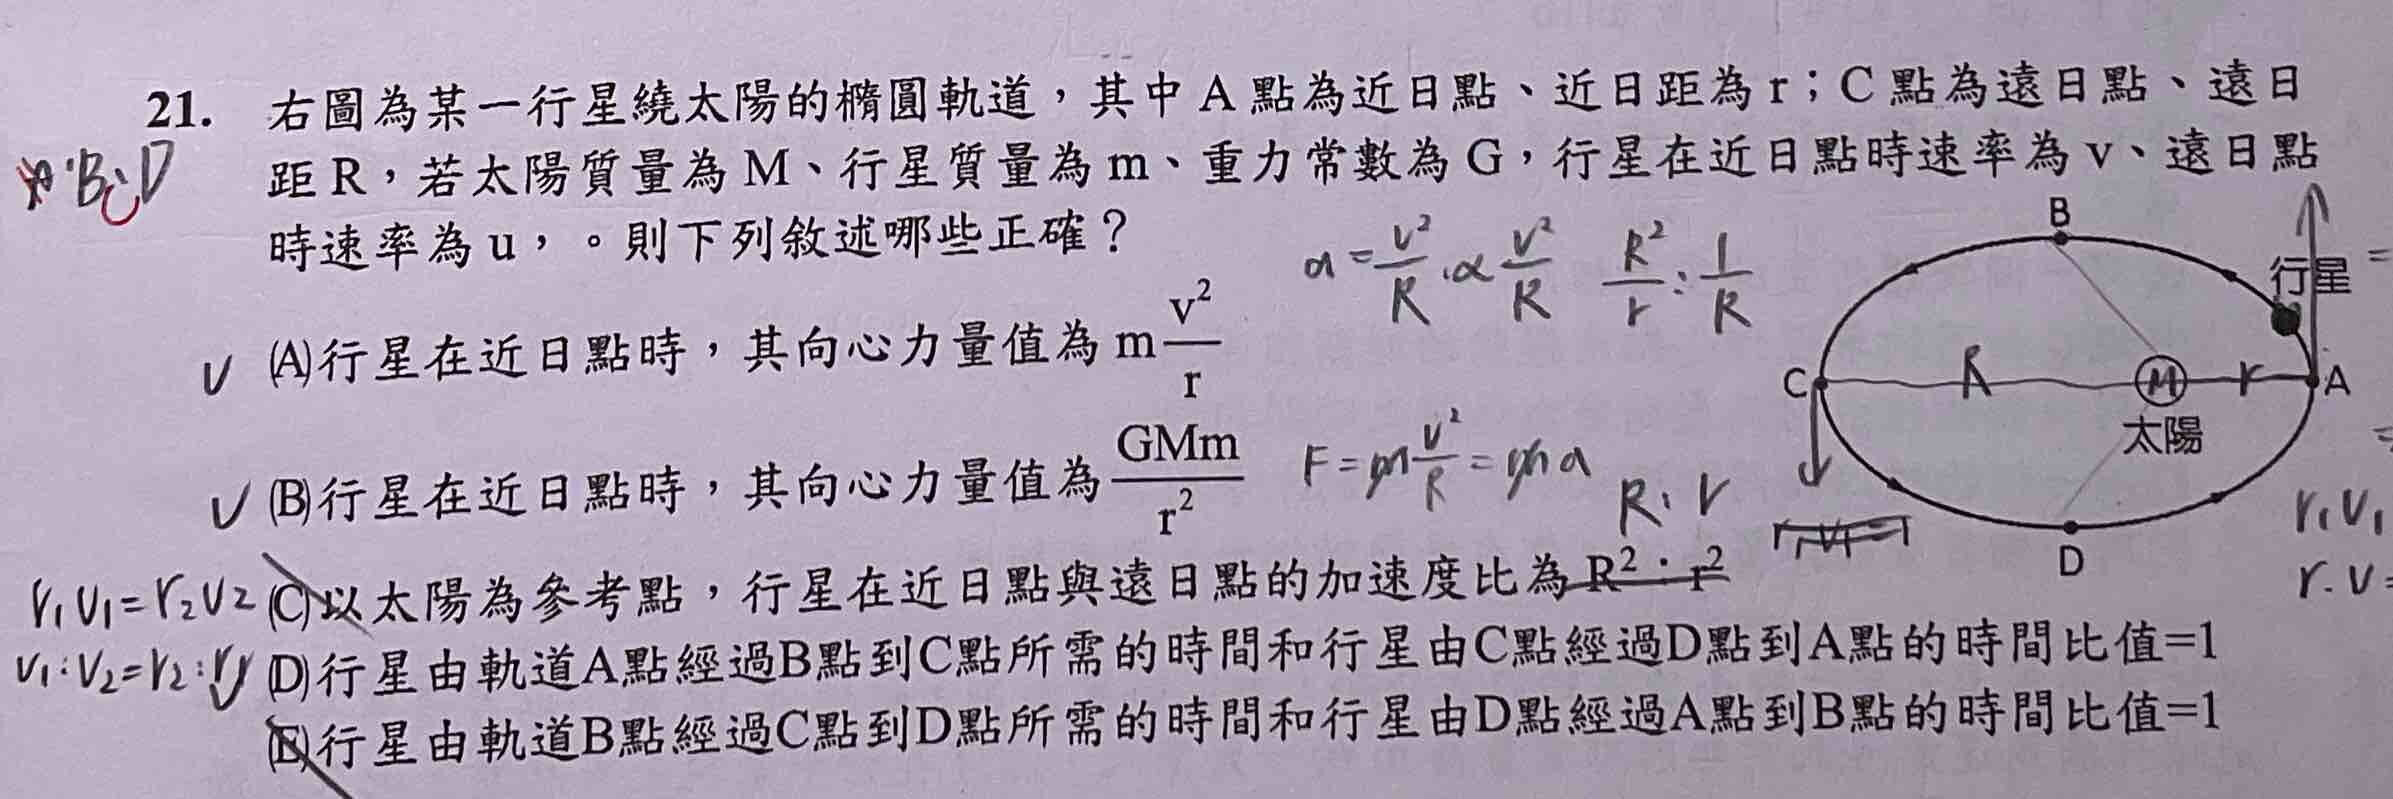 21. 右圖為某一行星繞太陽的橢圓軌道，其中 A 點為近日點、近日距為 r；C 點為遠日點、遠日
距 R，若太陽質量為 M、行星質量為 m、重力常數為 G，行星在近日點時速率為 v、遠日點
時速率為 u，。則下列敘述哪些正確？
B、D
a = v²/R ∝ v²/R R²/r : 1/R
(A)行星在近日點時，其向心力量值為 m v²/r
(B)行星在近日點時，其向心力量值為 GMm/r²
F = m v²/R = ma
R
r₁v₁ = r₂v₂
(C)以太陽為參考點，行星在近日點與遠日點的加速度比為 R²：r²
v₁:v₂ = r₂:r₁
(D)行星由軌道A點經過B點到C點所需的時間和行星由C點經過D點到A點的時間比值=1
(E)行星由軌道B點經過C點到D點所需的時間和行星由D點經過A點到B點的時間比值=1
B
行星
C
R
M
r
A
太陽
D
r₁v₁
r.v=